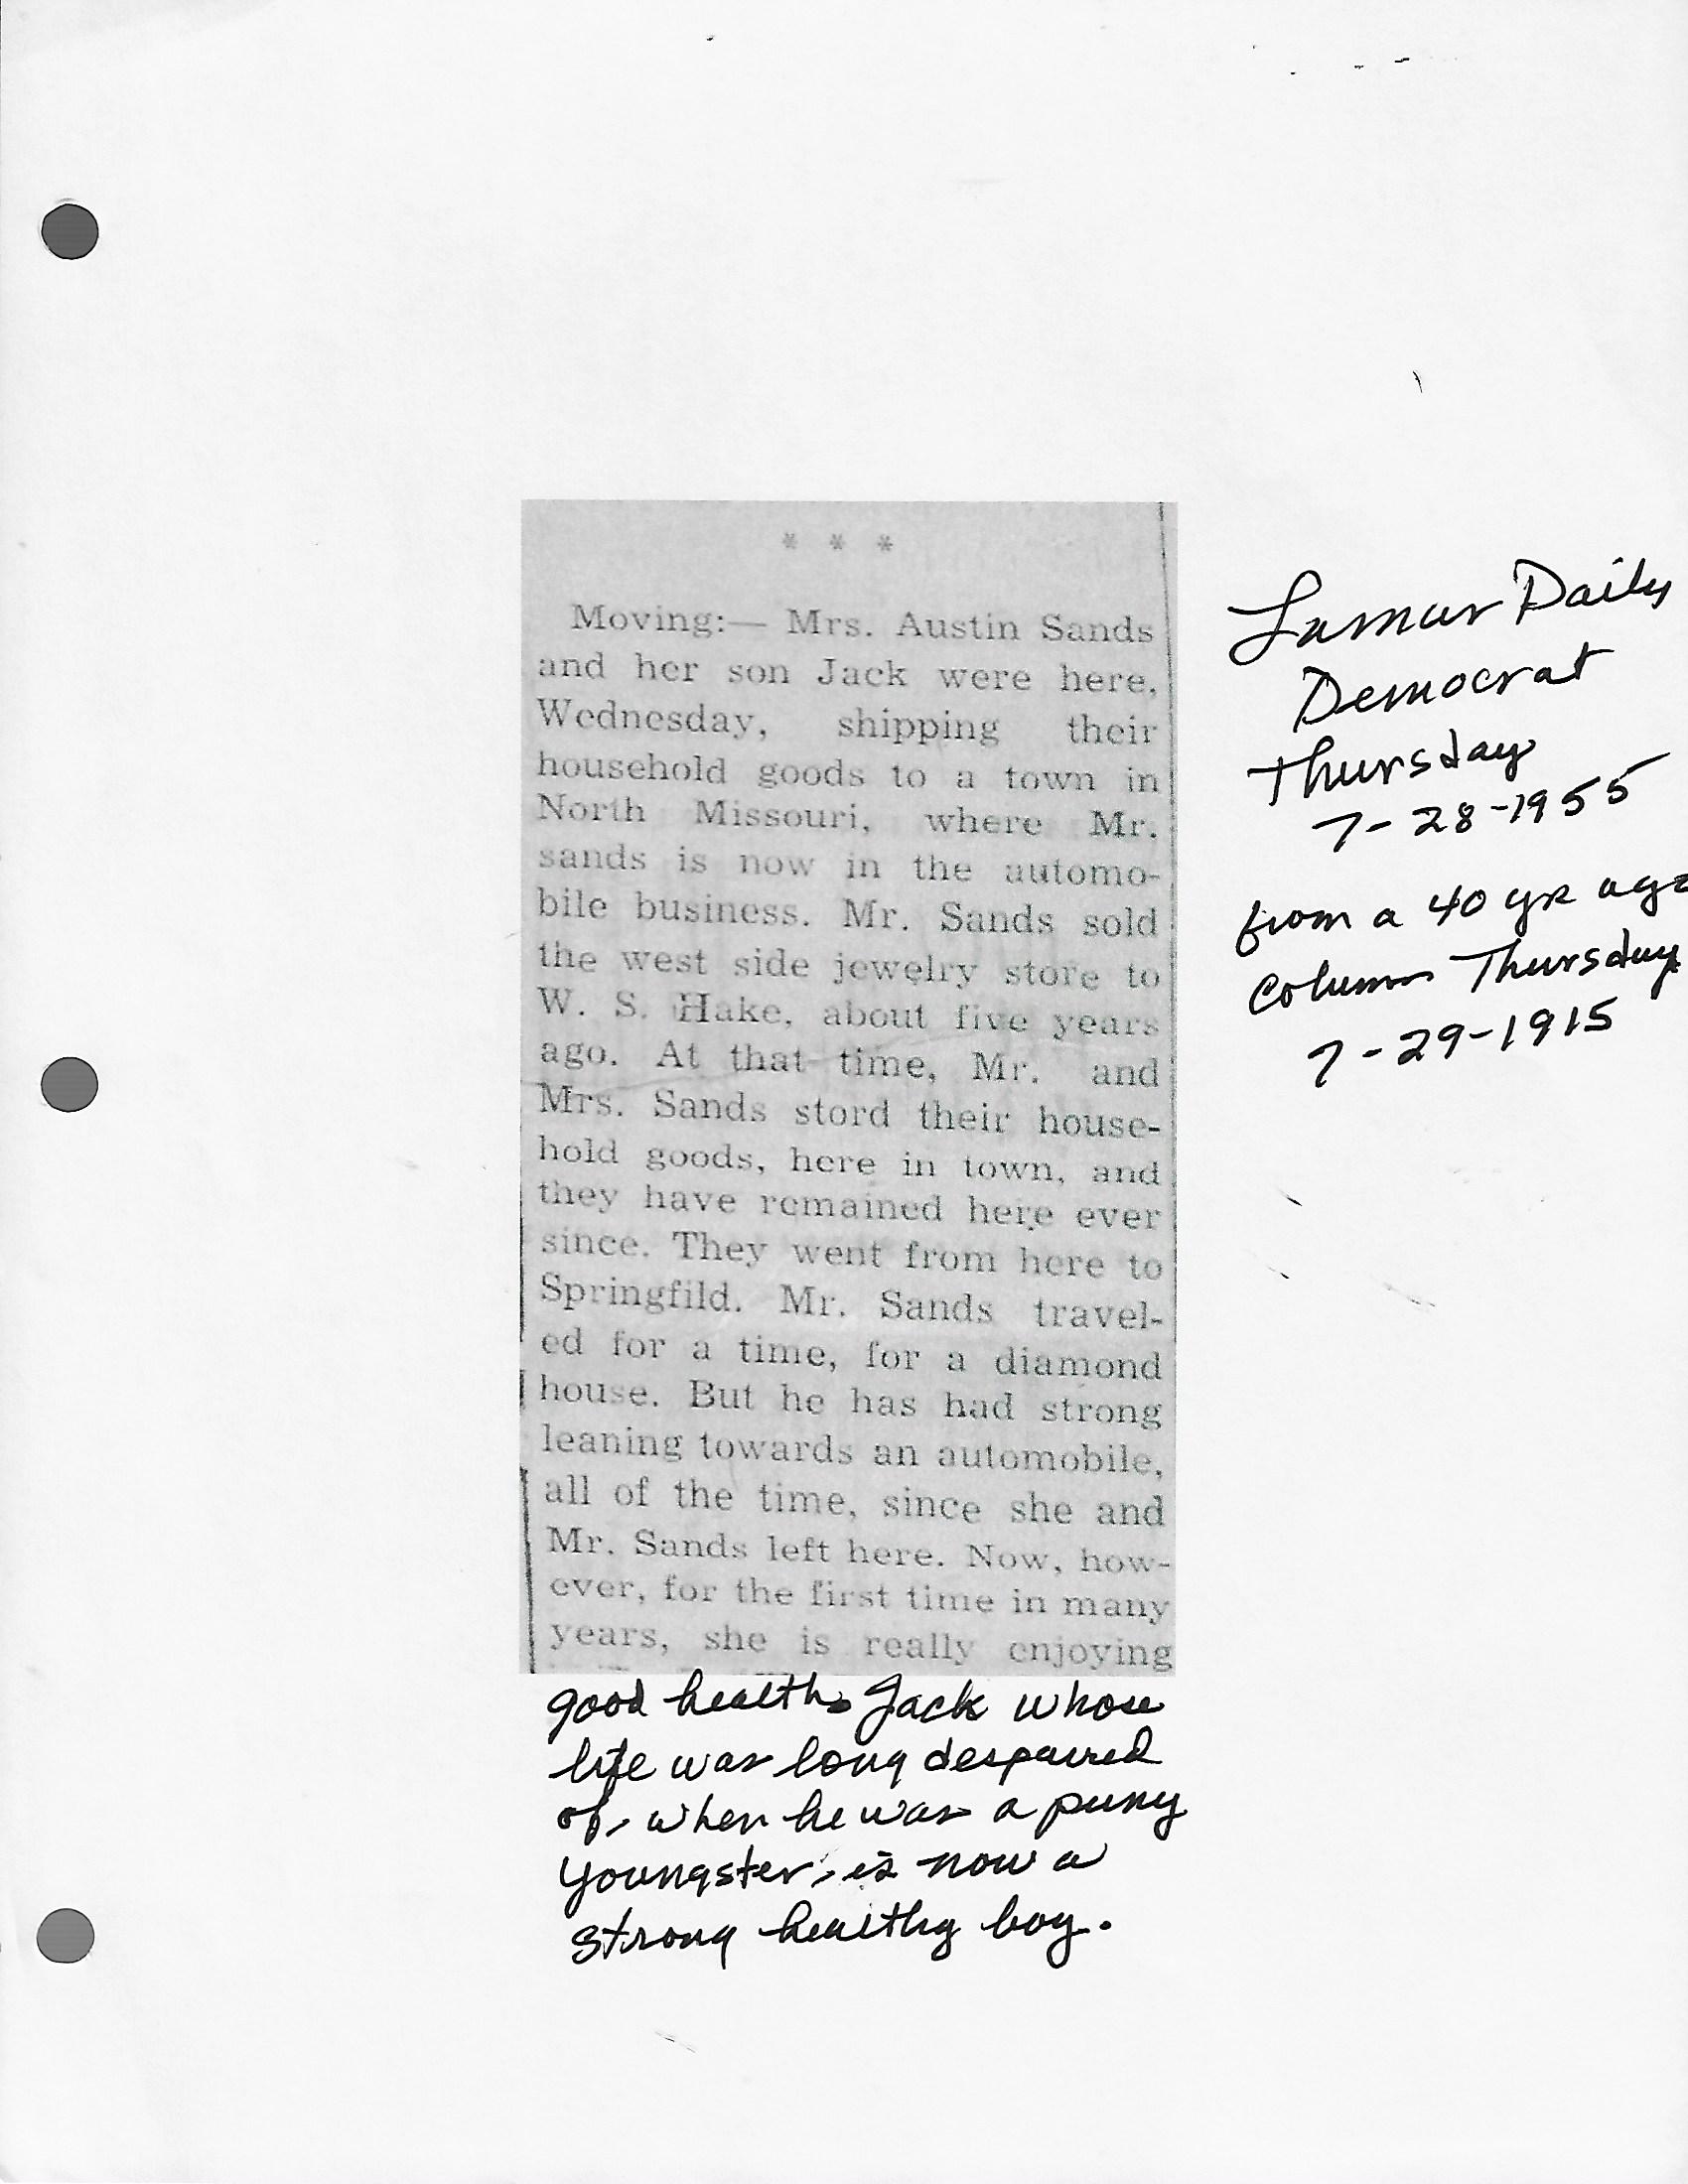 * * *
Moving:— Mrs. Austin Sands
and her son Jack were here,
Wednesday, shipping their
household goods to a town in
North Missouri, where Mr.
sands is now in the automo-
bile business. Mr. Sands sold
the west side jewelry store to
W. S. Hake, about five years
ago. At that time, Mr. and
Mrs. Sands stord their house-
hold goods, here in town, and
they have remained here ever
since. They went from here to
Springfild. Mr. Sands travel-
ed for a time, for a diamond
house. But he has had strong
leaning towards an automobile,
all of the time, since she and
Mr. Sands left here. Now, how-
ever, for the first time in many
years, she is really enjoying
good health. Jack whose
life was long despaired
of, when he was a puny
youngster, is now a
strong healthy boy.
Lamar Daily
Democrat
Thursday
7-28-1955
from a 40 yr ago
Column Thursday
7-29-1915